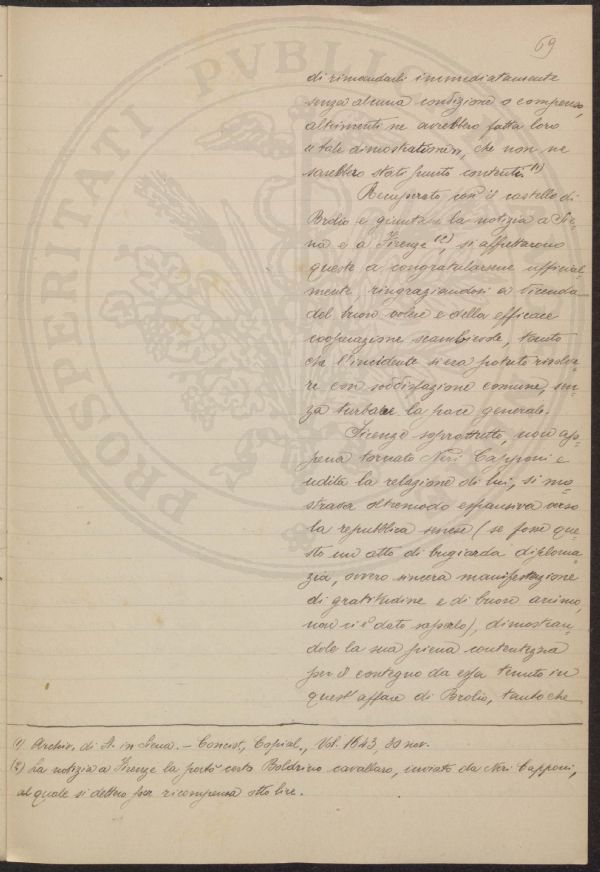 69
di rimandarli immediatamente
senza alcuna condizione o compenso,
altrimenti ne avrebbero fatta loro
e tale dimostrazione, che non ne
sarebbero stati punto contenti. (1)
Recuperato così il castello di
Brolio e giunta la notizia a Sie-
na e a Firenze (2), si affrettarono
queste a congratularsene ufficial
mente, ringraziandosi a vicenda
del buon volere e della efficace
cooperazione scambievole, tanto
che l'incidente si era potuto risolve-
re con soddisfazione comune, sen-
za turbare la pace generale.
Firenze soprattutto, non ap-
pena tornato Neri Capponi e
udita la relazione di lui, si mo-
strava oltremodo espansiva verso
la repubblica senese (se fosse que-
sto un atto di bugiarda diploma-
zia, ovvero sincera manifestazione
di gratitudine e di buon animo,
non ci è dato saperlo), dimostran-
dole la sua piena contentezza
per il contegno da essa tenuto in
quest'affare di Brolio, tanto che
(1) Archiv. di St. in Siena. - Concist., Copial., Vol. 1643, 30 nov.
(2) La notizia a Firenze la portò certo Boldrino cavallaro, inviato da Neri Capponi,
al quale si dettero per ricompensa otto lire.
PROSPERITATI PVBLICAE